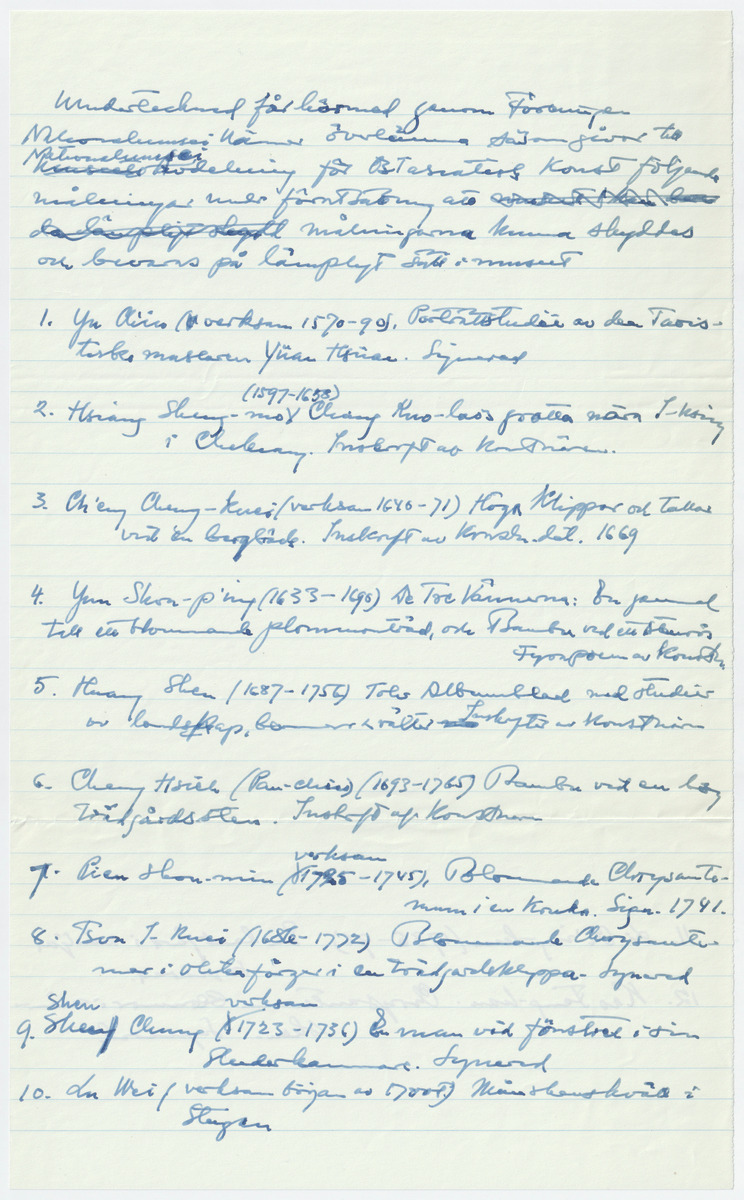 Undertecknad får härmed genom Föreningen
Nationalmusei Vänner överlämna såsom gåvor till
Nationalmusei
avdelning för Östasiatisk Konst följande
målningar under förutsättning att
målningarna kunna skyddas
och bevaras på lämpligt sätt i museet
1. Yu (verksam 1570-90), Porträttstudie av den Taois-
tiske Yüan Hsüan. Signerad
(1597-1658)
2. Hsiang Sheng-mo Chang Kuo-lao's grotta nära I-hsing
i Chekiang. Inskrift av Konstnären.
3. Ch'eng Cheng-Kuei (verksam 1640-71) Höga Klippor och tallar
vid en bergbäck. Inskrift av Konstn. dat. 1669
4. Yun Shou-p'ing (1633-1690) De Tre Vännerna: En gammal
tall ett blommande plommonträd, och Bambu vid ett
av Konstn.
5. Huang Shen (1687-1756) Tolv Albumblad med studier
av landskap, blommor & växter Inskrifter av Konstnären
6. Cheng Hsieh (Pan-chiao) (1693-1765) Bambu vid en hög
trädgårdssten. Inskrift af Konstnären
verksam
7. Pien Shou-min (1725-1745), Blommande Chrysante-
mum i en Kruka. Sign. 1741.
8. Tsou I-Kuei (1686-1772) Blommande Chrysante-
mer i olika färger i en trädgårdsklippa. Signerad
Shen verksam
9. Chung (1723-1736) En man vid fönstret i sin
Studerkammare. Signerad
10. Lu Wei (verksam början av 1700t.) Månskenskväll i
Skogen